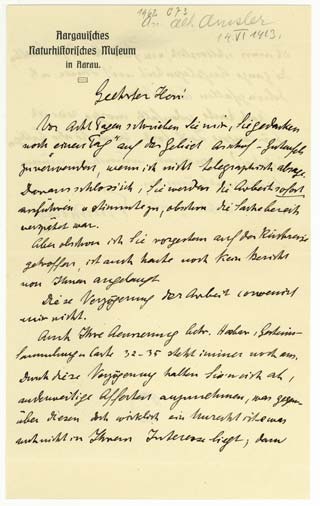 1962 C 73
A. Alb. Amsler
14. VI 1913.
Aargauisches
Naturhistorisches Museum
in Aarau.
Geehrter Herr
Vor acht Tagen schrieben Sie mir, Sie gedächten
noch einen Tag auf das Gebiet
zu verwenden, wenn ich nicht telegraphisch absage.
Daraus schloss ich, Sie werden die Arbeit sofort
ausführen u stimmte zu, obschon die Sache bereits
verspätet war.
Aber obschon ich Sie vorgestern auf der
getroffen, ist auch heute noch kein Bericht
von Ihnen angelangt.
Diese Verzögerung der Arbeit convenirt
mir nicht.
Auch Ihre Aeusserung betr.
Sammlung u Carte 32-35 steht immer noch aus.
Durch diese Verzögerung halten Sie mich ab,
anderweitige Offerten anzunehmen, was gegen-
über diesen doch wirklich ein Unrecht ist u was
auch nicht in Ihrem Interesse liegt; denn